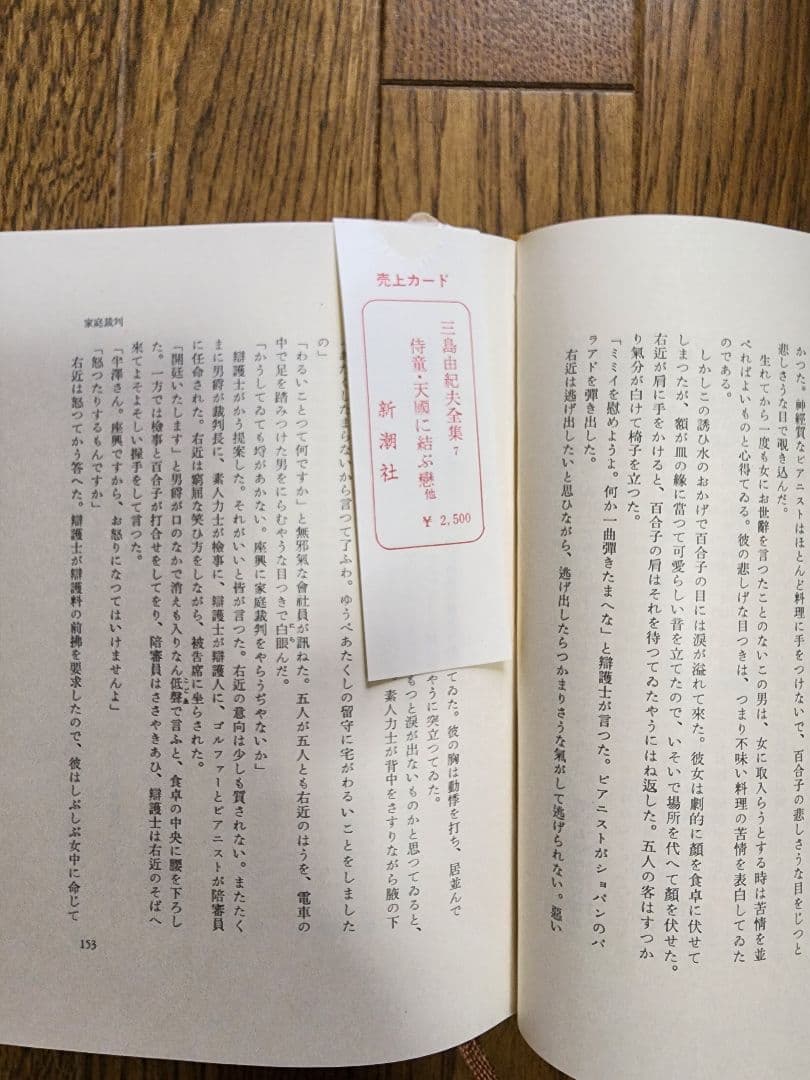 かつた。神經質なピアニストはほとんど料理に手をつけないで、百合子の悲しさうな目をじつと
悲しさうな目で覗き込んだ。
生れてから一度も女にお世辭を言つたことのないこの男は、女に取入らうとする時は苦情を並
べればよいものと心得てゐる。彼の悲しげな目つきは、つまり不味い料理の苦情を表白してゐた
のである。
しかしこの誘ひ水のおかげで百合子の目には涙が溢れて來た。彼女は劇的に顏を食卓に伏せて
しまつたが、額が皿の緣に當つて可愛らしい音を立てたので、いそいで場所を代へて顏を伏せた。
右近が肩に手をかけると、百合子の肩はそれを待つてゐたやうにはね返した。五人の客はすつか
り氣分が白けて椅子を立つた。
「ミミイを慰めようよ。何か一曲彈きたまへな」と辯護士が言つた。ピアニストがショパンのバ
ラアドを彈き出した。
右近は逃げ出したいと思ひながら、逃げ出したらつかまりさうな氣がして逃げられない。
売上カード
三島由紀夫全集 7
侍童・天國に結ぶ戀 他
新潮社
¥2,500
家庭裁判
てゐた。彼の胸は動悸を打ち、居並んで
やうに突立つてゐた。
もつと涙が出ないものかと思つてゐると、
素人力士が背中をさすりながら腋の下
たまらないから言つて了ふわ。ゆうべあたくしの留守に宅がわるいことをしました
の」
「わるいことつて何ですか」と無邪氣な會社員が訊ねた。五人が五人とも右近のはうを、電車の
中で足を踏みつけた男をにらむやうな目つきで白眼んだ。
「かうしてゐても埒があかない。座興に家庭裁判をやらうぢやないか」
辯護士がかう提案した。それがいいと皆が言つた。右近の意向は少しも質されない。またたく
まに男爵が裁判長に、素人力士が檢事に、辯護士が辯護人に、ゴルファーとピアニストが陪審員
に任命された。右近は窮屈な笑ひ方をしながら、被告席に坐らされた。
「開廷いたします」と男爵が口のなかで消えも入りなん低聲で言ふと、食卓の中央に腰を下ろし
た。一方では檢事と百合子が打合せをしてをり、陪審員はささやきあひ、辯護士は右近のそばへ
來てよそよそしい握手をして言つた。
「半澤さん。座興ですから、お怒りになつてはいけませんよ」
「怒つたりするもんですか」
右近は怒つてかう答へた。辯護士が辯護料の前拂を要求したので、彼はしぶしぶ女中に命じて
153